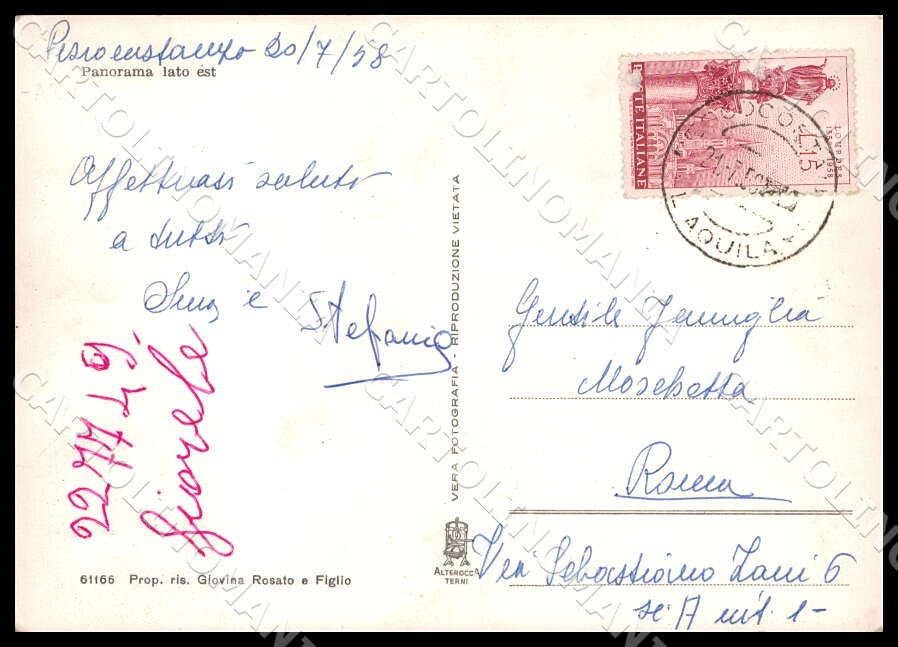 Pescocostanzo 20/7/58
Panorama lato est
Affettuosi saluti
a tutti
e Stefania
227749
61166 Prop. ris. Giovina Rosato e Figlio
VERA FOTOGRAFIA - RIPRODUZIONE VIETATA
ALTEROCCA
TERNI
POSTE ITALIANE
L.15
LOURDES
1858 1958
21.7.58
L'AQUILA
Gentile Famiglia
Moschetta
Roma
Via Sebastiano Zani 6
sc. A int. 1-
CARTOLINOMANIA